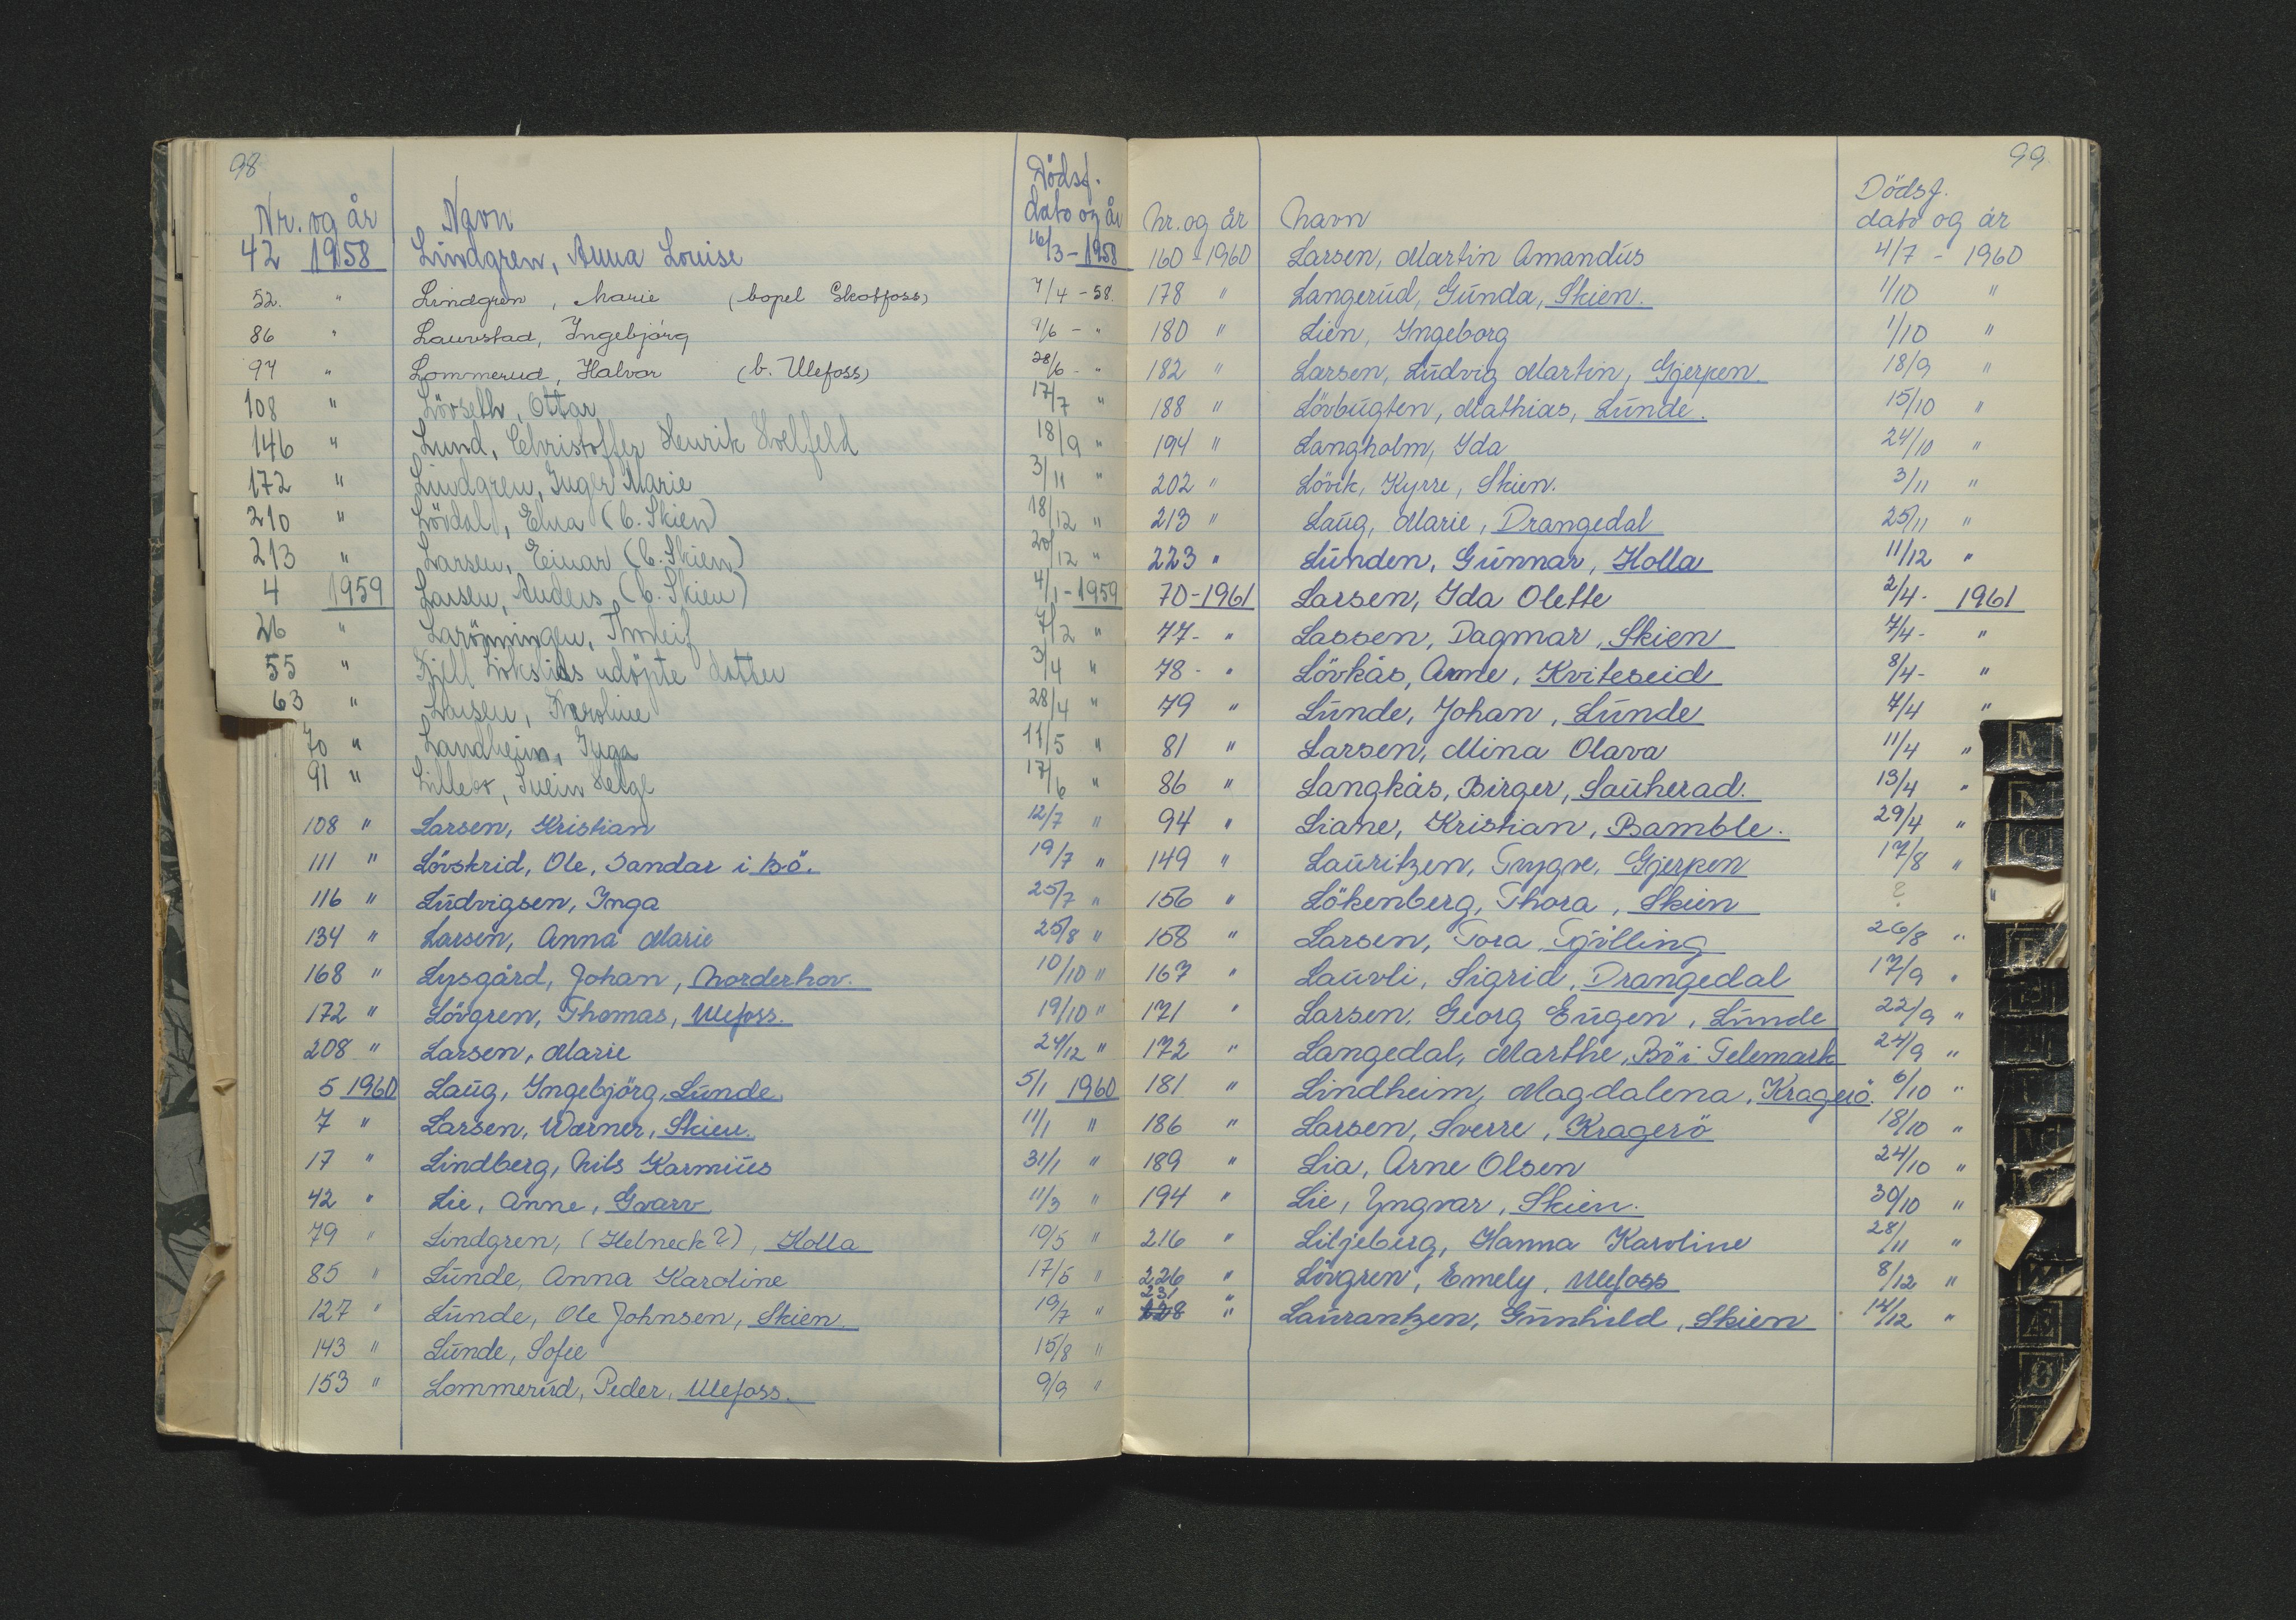 98
Nr. og år Navn Dödsf. dato og år
42 1958 Lindgren, Anna Louise 16/3 - 1958
52. " Lindgren, Marie (bopel Skotfoss) 7/4 - 58.
86 " Lauvstad, Ingebjörg 9/6 - "
97 " Lommerud, Halvor (b. Ulefoss) 28/6 - "
108 " Lövseth, Ottar 17/7 "
146 " Lund, Christoffer Henrik 18/9 "
172 " Lindgren, Inger Marie 3/11 "
210 " Lövdal, Elna (b. Skien) 18/12 "
213 " Larsen, Einar (b. Skien) 20/12 "
4 1959 Larsen, Anders (b. Skien) 4/1 - 1959
26 " Larönningen, Thorleif 7/2 "
55 " Kjell udöpte datter 3/4 "
63 " Larsen, Karoline 28/4 "
70 " Landheim, Inga 11/5 "
91 " Svein Helge 17/6 "
108 " Larsen, Kristian 12/7 "
111 " Lövskrid, Ole, Sandar i Bö. 19/7 "
116 " Ludvigsen, Inga 25/7 "
134 " Larsen, Anna Marie 25/8 "
168 " Lysgård, Johan, Norderhov. 10/10 "
172 " Lövgren, Thomas, Ulefoss. 19/10 "
208 " Larsen, Marie 24/12 "
5 1960 Laug, Ingebjörg, Lunde. 5/1 1960
7 " Larsen, Werner, Skien. 11/1 "
17 " Lindberg, Nils Karmius 31/1 "
42 " Lie, Anne, Gvarv 11/3 "
79 " Lindgren, (Helneck?), Holla 10/5 "
85 " Lunde, Anna Karoline 17/5 "
127 " Lunde, Ole Johnsen, Skien. 19/7 "
143 " Lunde, Sofie 15/8 "
153 " Lommerud, Peder, Ulefoss. 9/9 "
99
Nr. og år Navn Dödsf. dato og år
160 - 1960 Larsen, Martin Amandus 4/7 - 1960
178 " Langerud, Gunda, Skien. 1/10 "
180 " Lien, Ingeborg 1/10 "
182 " Larsen, Ludvig Martin, Gjerpen. 18/9 "
188 " Lövbugten, Mathias, Lunde. 15/10 "
194 " Langholm, Ida 24/10 "
202 " Lövik, Kyrre, Skien. 3/11 "
213 " Laug, Marie, Drangedal 25/11 "
223 " Lunden, Gunnar, Holla 11/12 "
70 - 1961 Larsen, Ida Olette 2/4 - 1961
77 - " Lassen, Dagmar, Skien 7/4 - "
78 - " Lövkås, Anne, Kviteseid 8/4 - "
79 " Lunde, Johan, Lunde 7/4 "
81 " Larsen, Mina Olava 11/4 "
86 " Langkås, Birger, Sauherad. 13/4 "
94 " Liane, Kristian, Bamble. 29/4 "
149 " Lauritzen, Trygve, Gjerpen 17/8 "
156 " Lökenberg, Thora, Skien ? "
158 " Larsen, Tora, Tjölling 26/8 "
167 " Lauvli, Sigrid, Drangedal 17/9 "
171 " Larsen, Georg Eugen, Lunde 22/9 "
172 " Langedal, Marthe, Bö i Telemark 24/9 "
181 " Lindheim, Magdalena, Kragerö. 6/10 "
186 " Larsen, Sverre, Kragerö 18/10 "
189 " Lia, Arne Olsen 24/10 "
194 " Lie, Yngvar, Skien. 30/10 "
216 " Liljeberg, Hanna Karoline 28/11 "
226 " Lövgren, Emely, Ulefoss 8/12 "
231 " Laurantzen, Gunhild, Skien 14/12 "
M
N
O
P
U
Æ
Ø